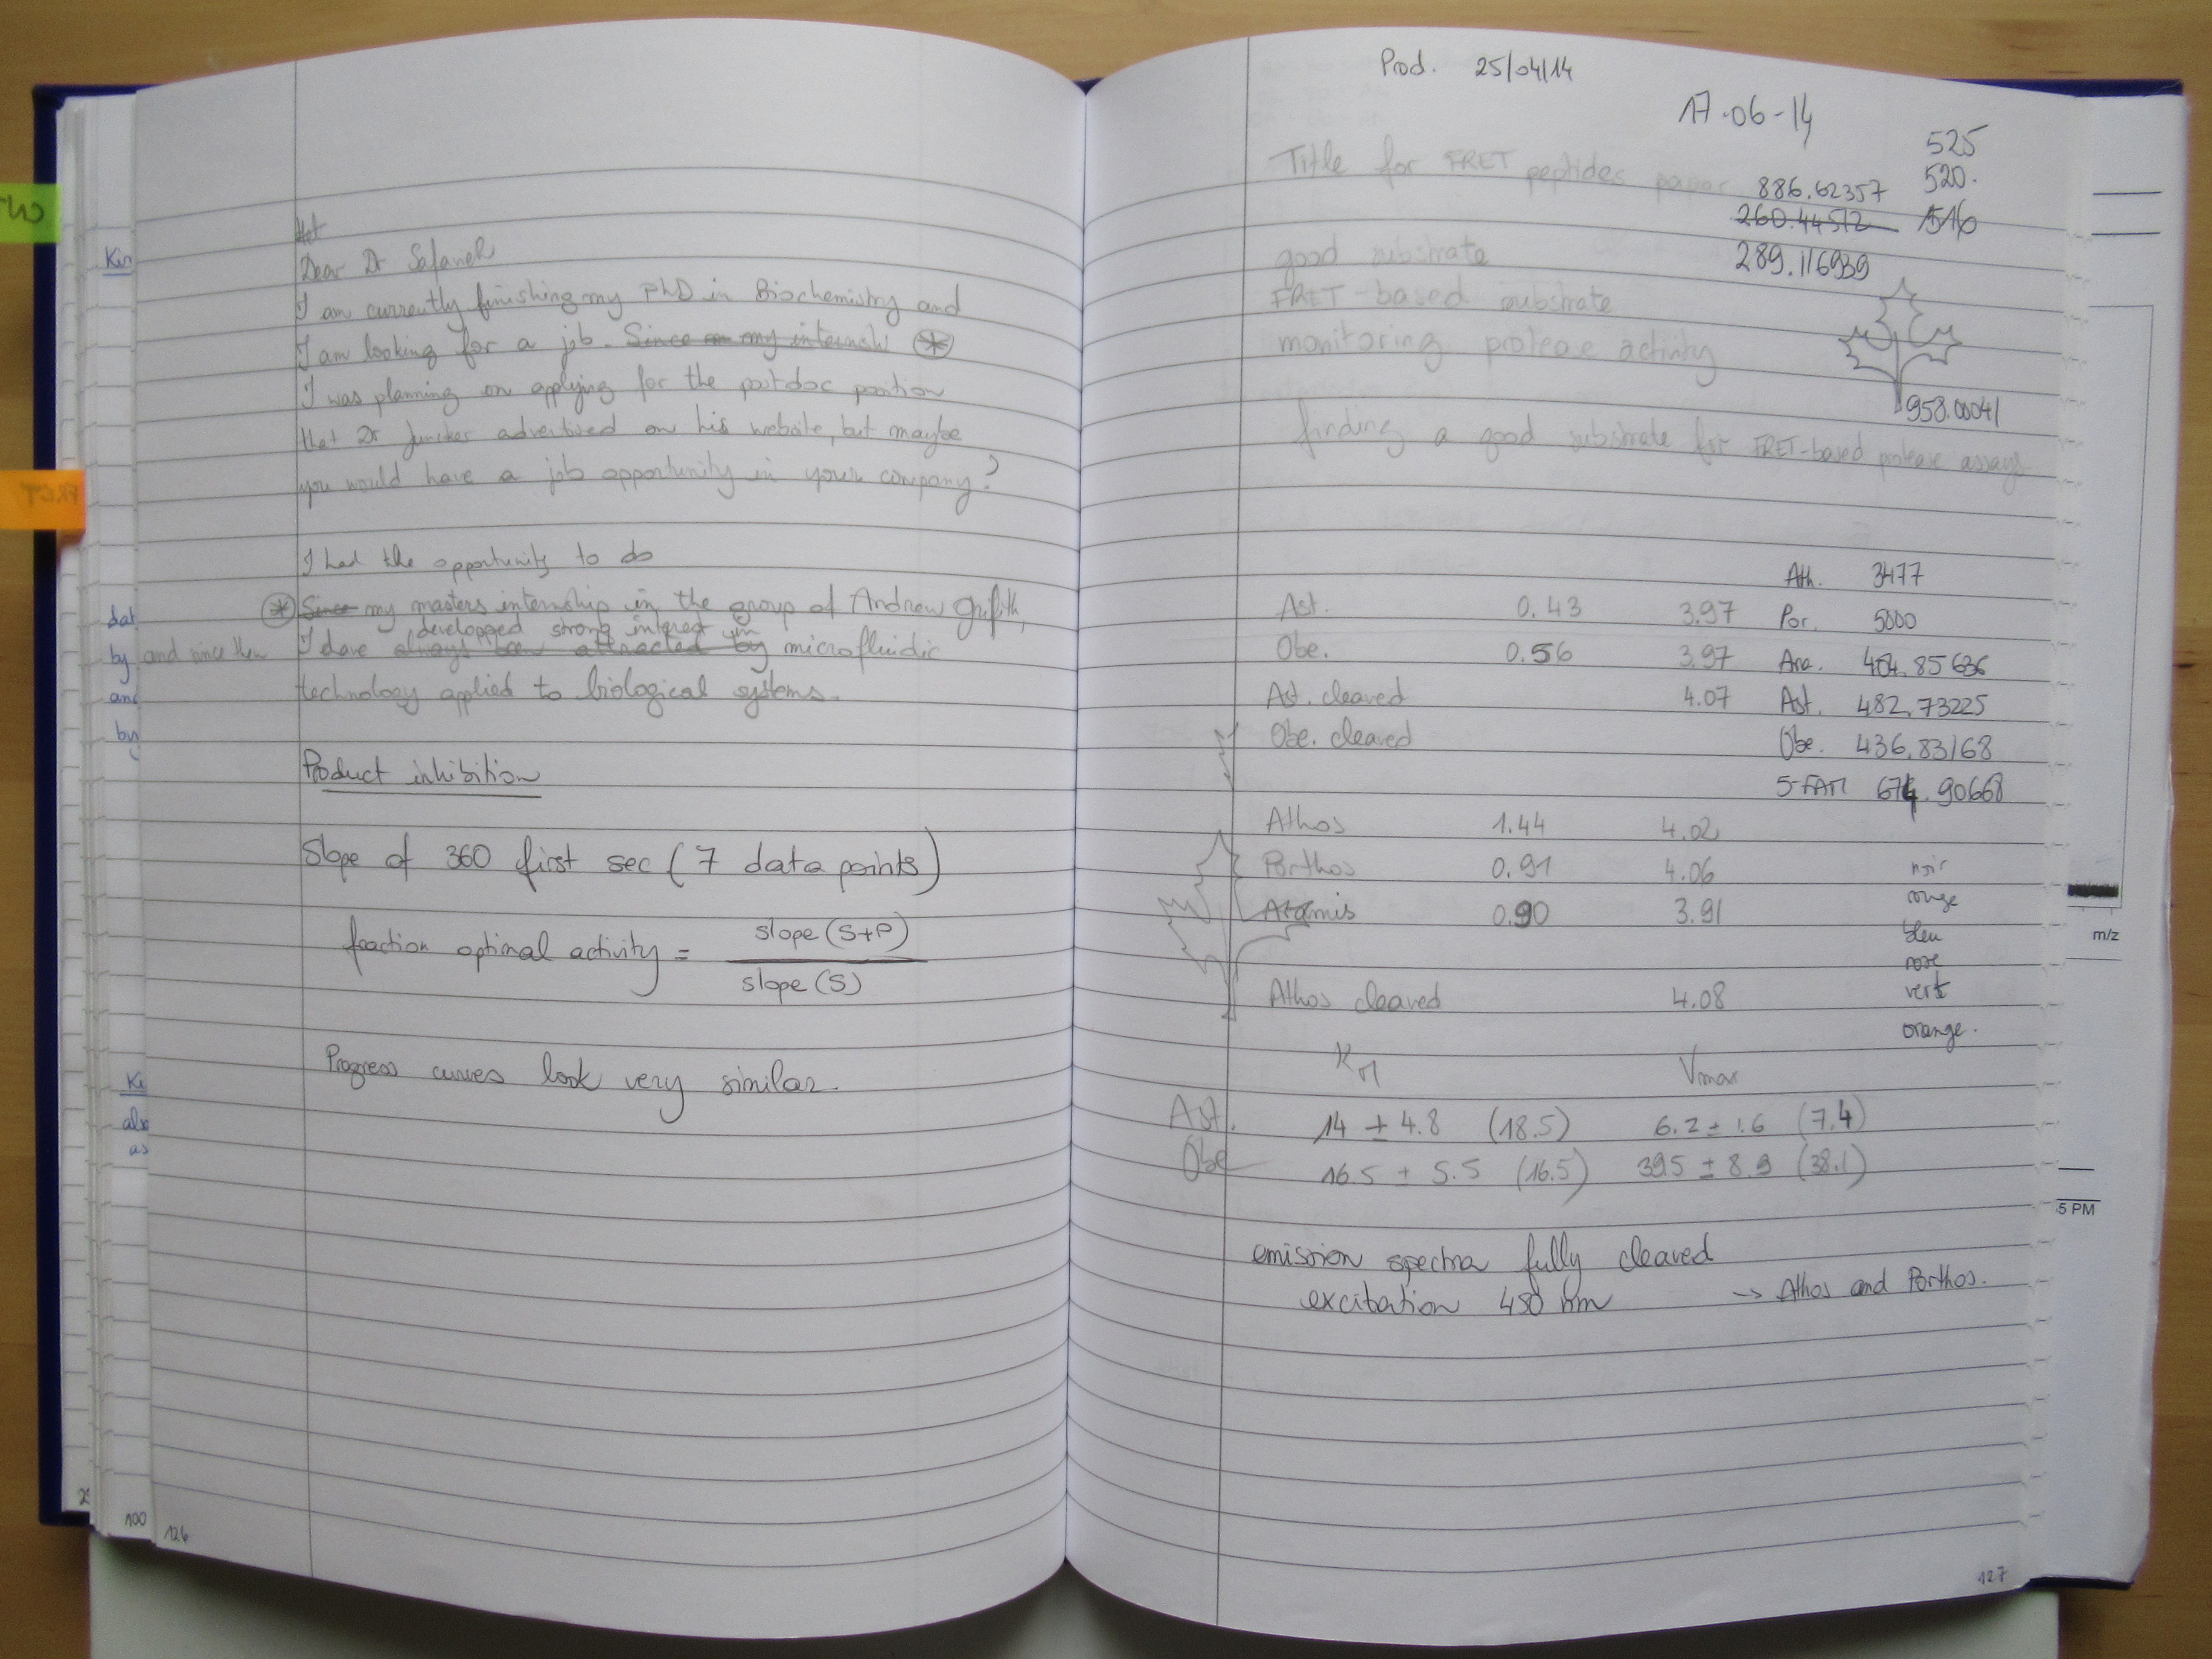 Dear Dr Safaneh
I am currently finishing my PhD in Biochemistry and
I am looking for a job. Since on my internsh *
I was planning on applying for the postdoc position
that Dr Juncker advertised on his website, but maybe
you would have a job opportunity in your company?
I had the opportunity to do
* Since my masters internship in the group of Andrew Griffith,
developped strong interest in
and since then I have always been attracted by microfluidic
technology applied to biological systems.
Product inhibition
Slope of 360 first sec (7 data points)
fraction optimal activity = slope (S+P)
slope (S)
Progress curves look very similar.
100
126
Kin
dat
by
and
by
Ki
also
as
FRET
Prod. 25/04/14
17-06-14
525
Title for FRET peptides paper 886.62357 520.
260.44512 516
good substrate 289.116939
FRET-based substrate
monitoring protease activity
958.00041
finding a good substrate for FRET-based protease assays
Ath. 3477
Ast. 0.43 3.97 Por. 5000
Obe. 0.56 3.97 Ara. 404.85636
Ast. cleaved 4.07 Ast. 482.73225
Obe. cleaved Obe. 436.83168
5-FAM 674.90668
Athos 1.44 4.02
Porthos 0.91 4.06 noir
rouge
Aramis 0.90 3.91
bleu
rose
Athos cleaved 4.08 vert
orange.
KM Vmax
Ast. 14 ± 4.8 (18.5) 6.2 ± 1.6 (7.4)
Obe 16.5 ± 5.5 (16.5) 39.5 ± 8.9 (38.1)
emission spectra fully cleaved
excitation 450 nm -> Athos and Porthos.
127
m/z
5 PM